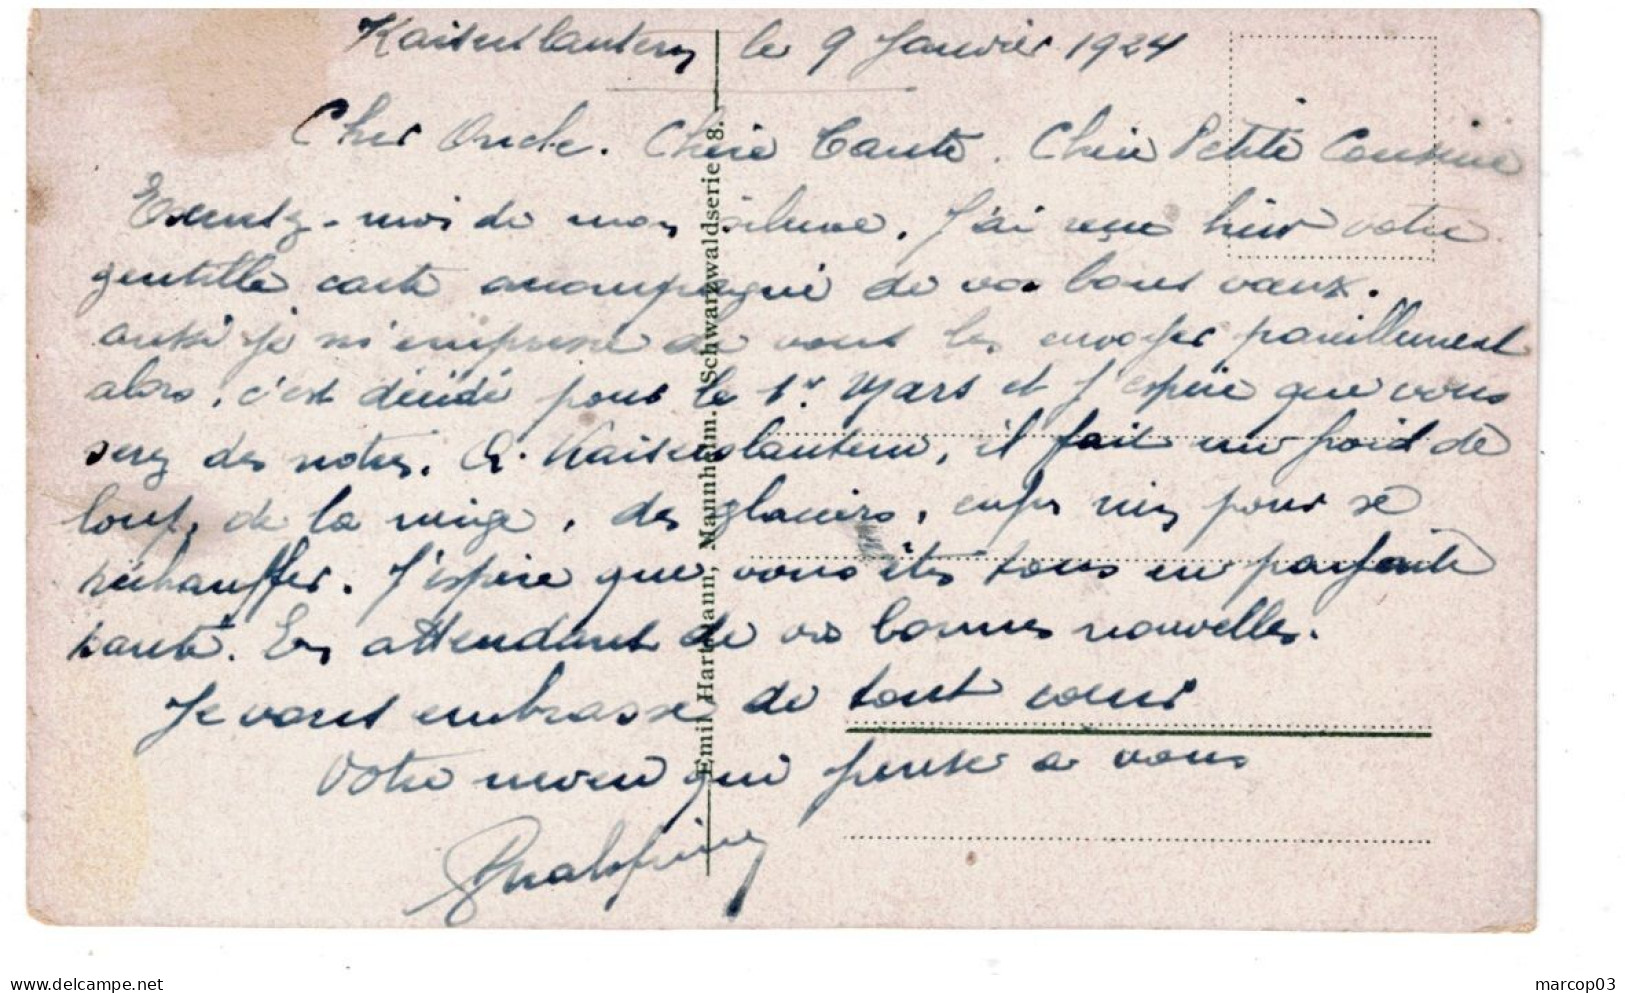 Kaiserslautern le 9 Janvier 1924
Cher Oncle. Chère Tante. Chère Petite Cousine
Excusez-moi de mon silence. J'ai reçu hier votre
gentille carte accompagné de vos bons vœux.
aussi je m'empresse de vous les envoyer pareillement
alors, c'est décidé pour le 1er Mars et j'espère que vous
serez des notres. A Kaiserslautern, il fait un froid de
loup, de la neige, des glaciers, enfin rien pour se
réchauffer. J'espère que vous êtes tous en parfaite
santé. En attendant de vos bonnes nouvelles.
Je vous embrasse de tout cœur
Votre neveu qui pense a vous
Emil Hartmann, Mannheim. Schwarzwaldserie 8.
marcop03
www.delcampe.net